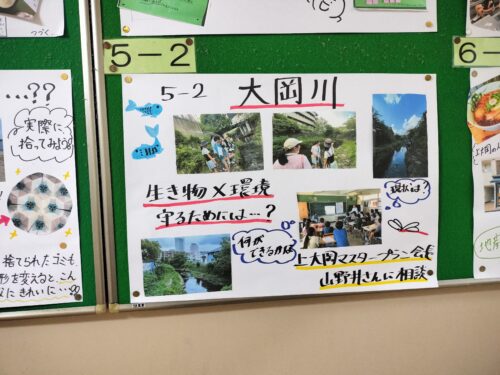 つづく
5-2
6-
…??
実際に
拾ってみよう
捨てられたゴミも
形を変えると、こん
なにきれいに…
5-2 大岡川
生き物×環境
守るためには…?
何が
できるかな
現状は?
上大岡マスタープラン会長
山野井さんに相談